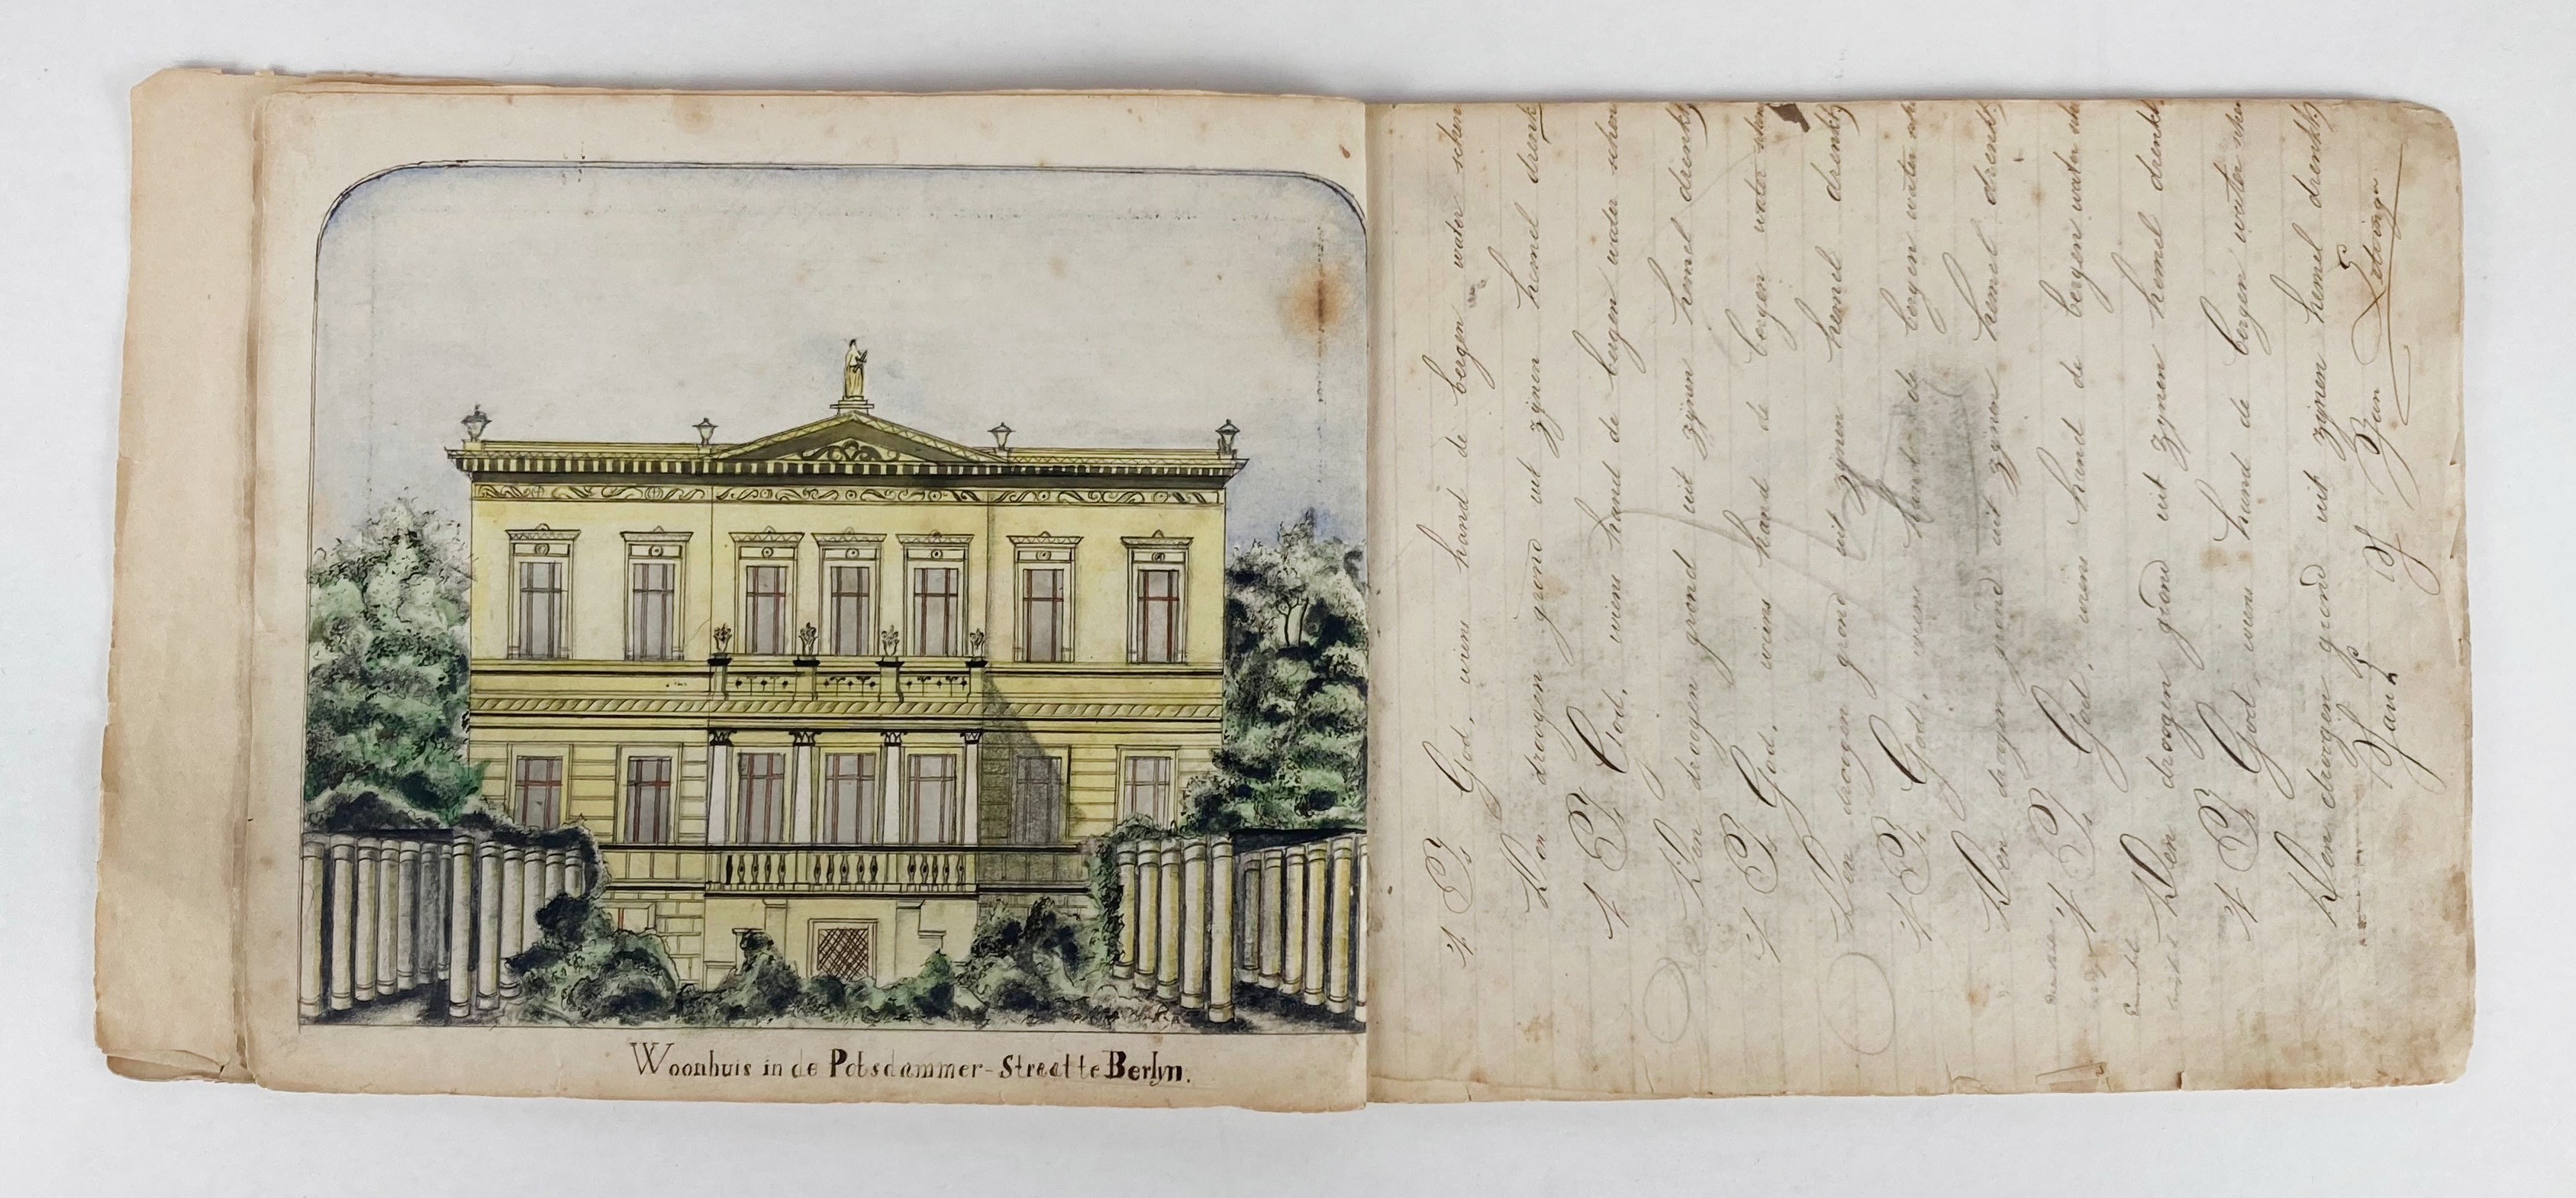 Woonhuis in de Potsdammer-Straat te Berlyn.
't Is God, wiens hand de bergen water schen
Den droogen grond uit zynen hemel drenkt,
't Is God, wiens hand de bergen water schen
Den droogen grond uit zynen hemel drenkt,
't Is God, wiens hand de bergen water schen
Den droogen grond uit zynen hemel drenkt,
't Is God, wiens hand de bergen water sche
Den droogen grond uit zynen hemel drenkt,
't Is God, wiens hand de bergen water sche
Den droogen grond uit zynen hemel drenkt
't Is God, wiens hand de bergen water schen
Den droogen grond uit zynen hemel drenkt,